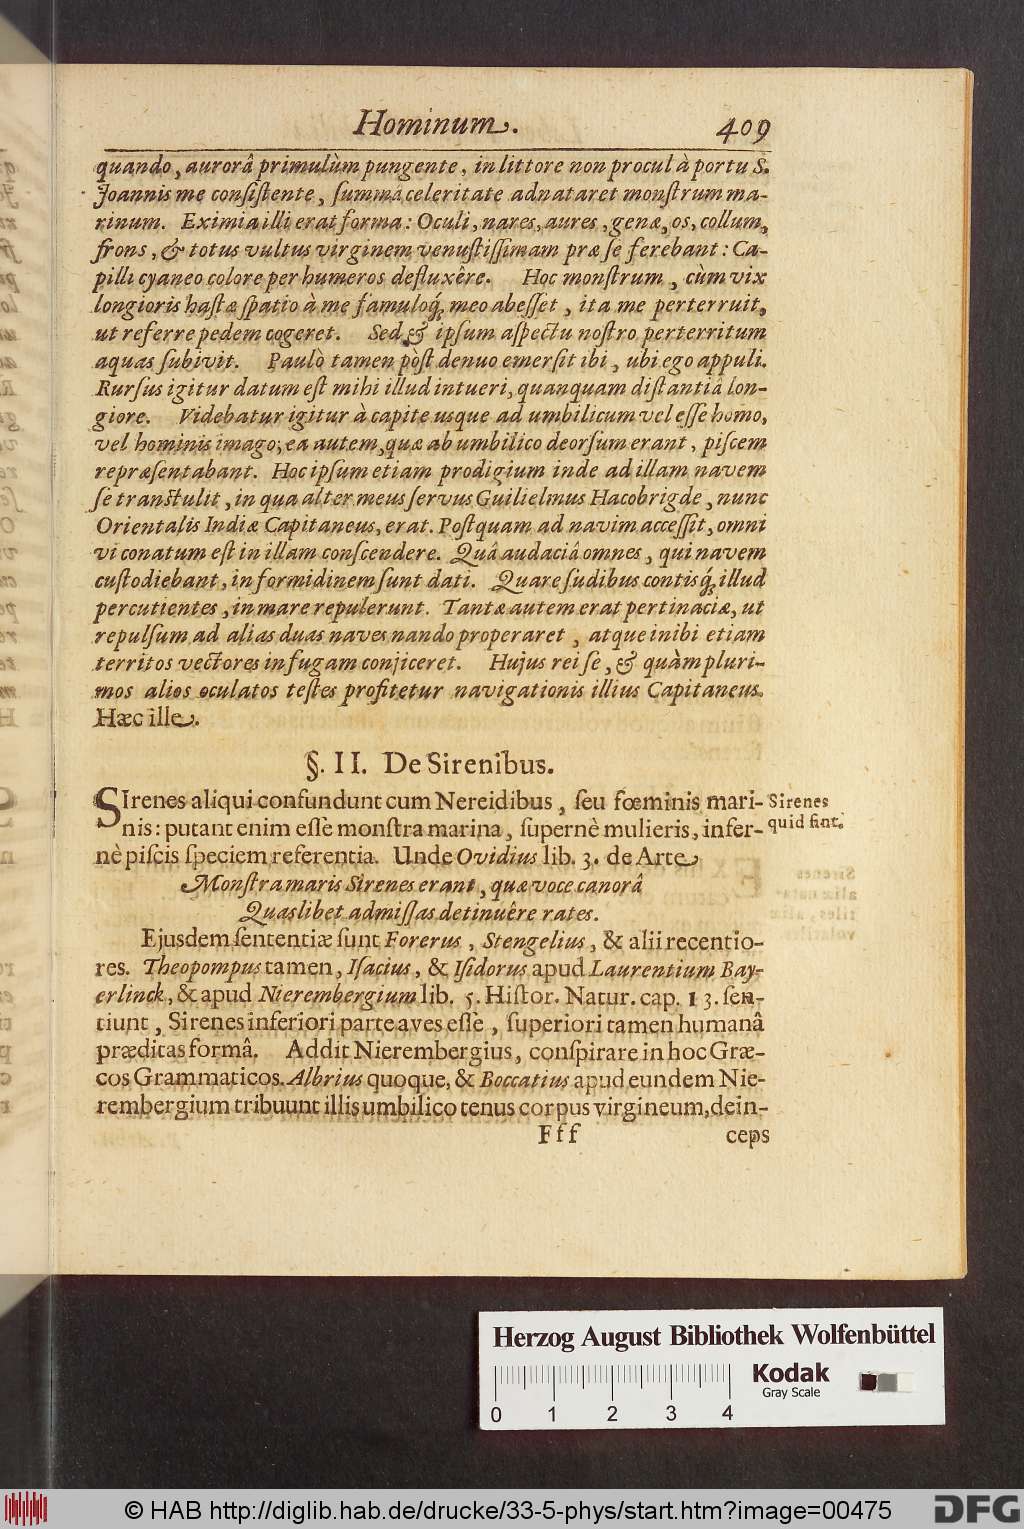 Hominum. 409
quando, aurorâ primulùm pungente, in littore non procul à portu S.
Joannis me consiſtente, ſummâ celeritate adnataret monſtrum ma-
rinum. Eximia illi erat forma: Oculi, nares, aures, genæ, os, collum,
frons, & totus vultus virginem venuſtiſſimam præ ſe ferebant: Ca-
pilli cyaneo colore per humeros defluxêre. Hoc monſtrum, cùm vix
longioris haſtæ ſpatio à me famuloq́; meo abeſſet, ita me perterruit,
ut referre pedem cogeret. Sed & ipſum aſpectu noſtro perterritum
aquas ſubivit. Paulò tamen pòſt denuo emerſit ibi, ubi ego appuli.
Rurſus igitur datum eſt mihi illud intueri, quanquam diſtantiâ lon-
giore. Videbatur igitur à capite usque ad umbilicum vel eſſe homo,
vel hominis imago; ea autem, quæ ab umbilico deorſùm erant, piſcem
repræſentabant. Hoc ipſum etiam prodigium inde ad illam navem
ſe tranſtulit, in qua alter meus ſervus Guilielmus Hacobrigde, nunc
Orientalis Indiæ Capitaneus, erat. Poſtquam ad navim acceſſit, omni
vi conatum eſt in illam conſcendere. Quâ audaciâ omnes, qui navem
cuſtodiebant, in formidinem ſunt dati. Quare ſudibus contisq́; illud
percutientes, in mare repulerunt. Tantæ autem erat pertinaciæ, ut
repulſum ad alias duas naves nando properaret, atque inibi etiam
territos vectores in fugam conjiceret. Hujus rei ſe, & quàm pluri-
mos alios oculatos teſtes profitetur navigationis illius Capitaneus.
Hæc ille.
§. II. De Sirenibus.
SIrenes aliqui confundunt cum Nereidibus, ſeu fœminis mari-
nis: putant enim eſſe monſtra marina, ſupernè mulieris, infer-
nè piſcis ſpeciem referentia. Unde Ovidius lib. 3. de Arte
Sirenes
quid ſint.
Monſtra maris Sirenes erant, quæ voce canorâ
Quaslibet admiſſas detinuêre rates.
Ejusdem ſententiæ ſunt Forerus, Stengelius, & alii recentio-
res. Theopompus tamen, Iſacius, & Iſidorus apud Laurentium Bay-
erlinck, & apud Nierembergium lib. 5. Hiſtor. Natur. cap. 13. ſen-
tiunt, Sirenes inferiori parte aves eſſe, ſuperiori tamen humanâ
præditas formâ. Addit Nierembergius, conſpirare in hoc Græ-
cos Grammaticos. Albrius quoque, & Boccatius apud eundem Nie-
rembergium tribuunt illis umbilico tenus corpus virgineum, dein-
Fff ceps
Herzog August Bibliothek Wolfenbüttel
Kodak
Gray Scale
0 1 2 3 4
© HAB http://diglib.hab.de/drucke/33-5-phys/start.htm?image=00475
DFG